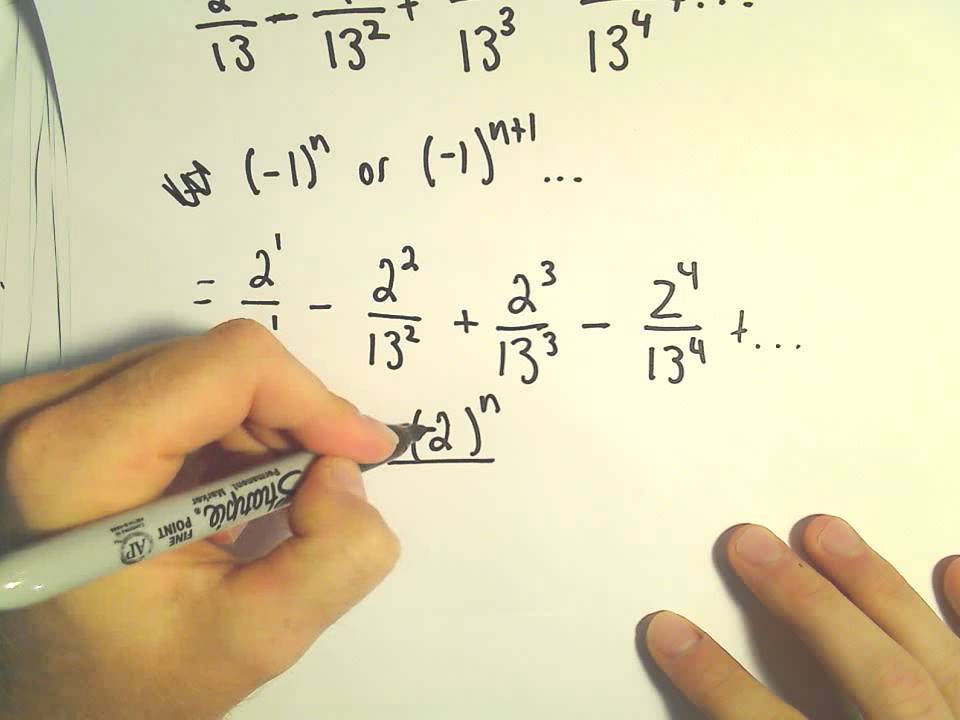 2/13 - /13^2 + /13^3 /13^4 + ...
(-1)^n or (-1)^{n+1} ...
= 2^1/ ^1 - 2^2/13^2 + 2^3/13^3 - 2^4/13^4 + ...
(2)^n
Sharpie.
Permanent Marker
FINE POINT
AP